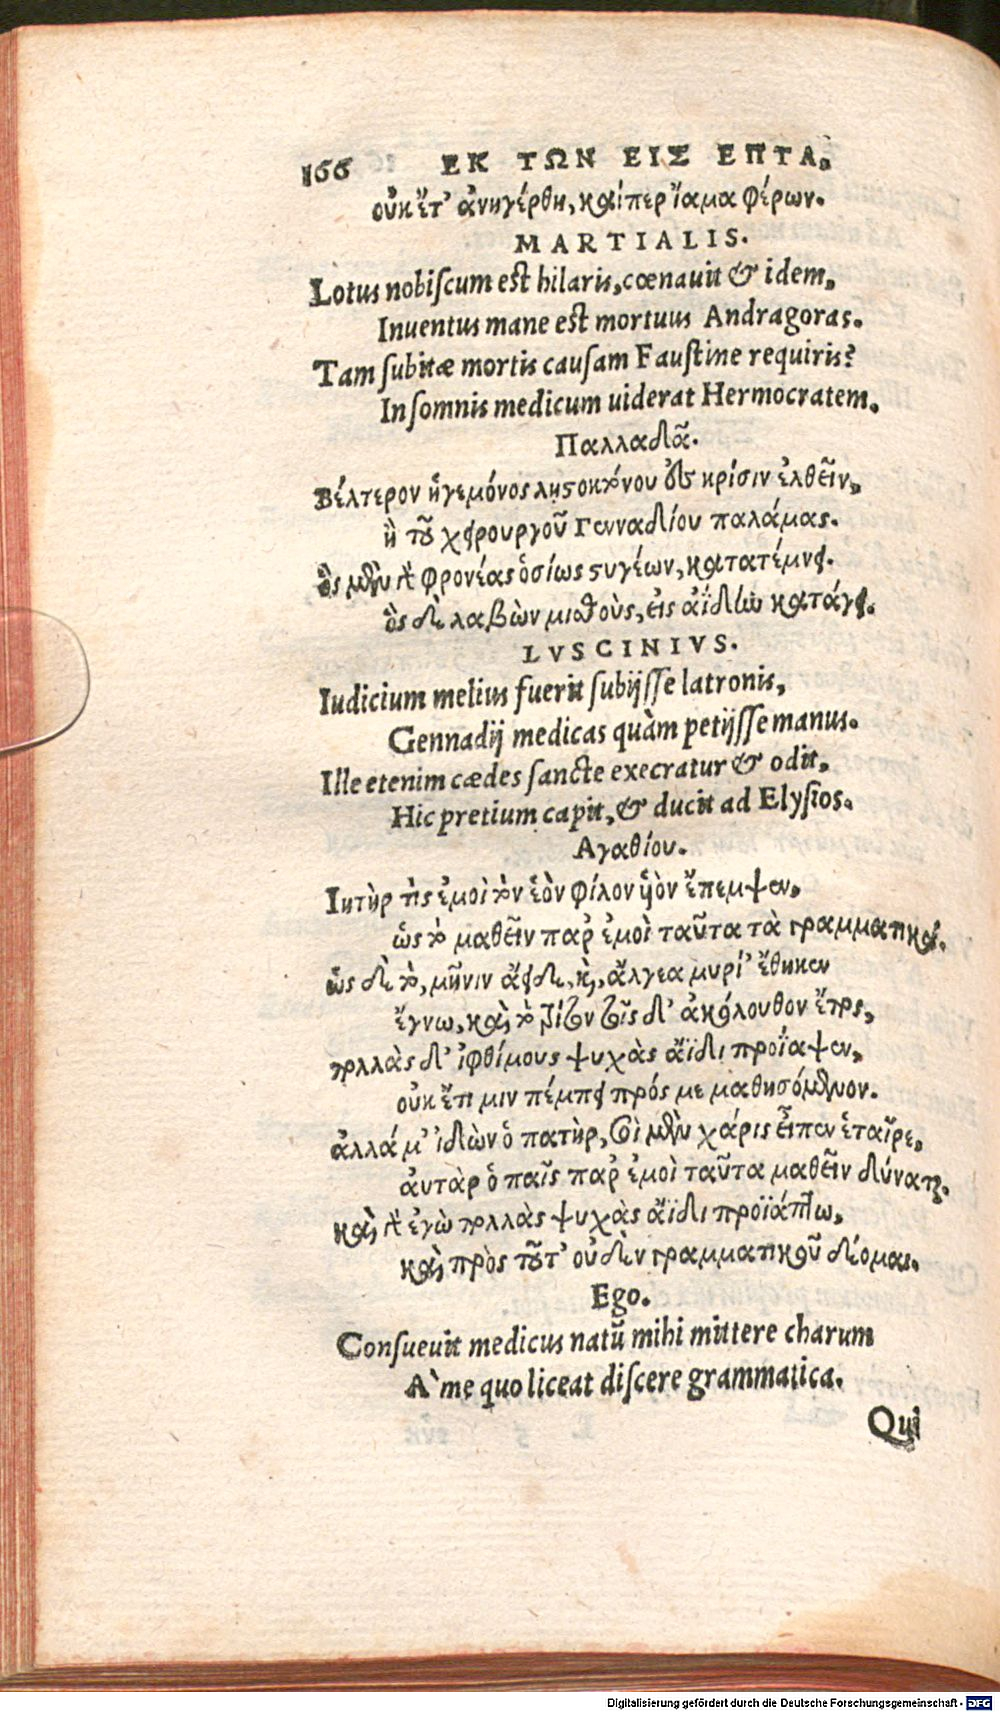 166 ΕΚ ΤΩΝ ΕΙΣ ΕΠΤΑ.
οὐκ ἔτ' ἀνηγέρθη, καίπερ ἴαμα φέρων.
MARTIALIS.
Lotus nobiscum est hilaris, cœnauit & idem,
Inuentus mane est mortuus Andragoras.
Tam subitæ mortis causam Faustine requiris?
In somnis medicum uiderat Hermocratem.
Παλλαδᾶ.
Βέλτερον ἡγεμόνος λῃστοκτόνου ἐς κρίσιν ἐλθεῖν,
ἢ τοῦ χειρουργοῦ Γενναδίου παλάμας.
ὃς μὲν γὰρ φονέας ὁσίως στυγέων, κατατέμνει.
ὃς δὲ λαβὼν μισθοὺς, εἰς ἀΐδην κατάγει.
LVSCINIVS.
Iudicium melius fuerit subijsse latronis,
Gennadij medicas quàm petijsse manus.
Ille etenim cædes sancte execratur & odit,
Hic pretium capit, & ducit ad Elysios.
Αγαθίου.
Ιητήρ τις ἐμοὶ τὸν ἑὸν φίλον ὑιὸν ἔπεμψεν,
ὥς τε μαθεῖν παρ' ἐμοὶ ταῦτα τὰ γραμματικά.
ὡς δὲ τὸ, μῆνιν ἄειδε, καὶ, ἄλγεα μυρί' ἔθηκεν
ἔγνω, καὶ τὸ τρίτον τοῖς δ' ἀκόλουθον ἔπος,
πολλὰς δ' ἰφθίμους ψυχὰς ἄϊδι προΐαψεν,
οὐκ ἔτι μιν πέμπει πρός με μαθησόμενον.
ἀλλά μ' ἰδὼν ὁ πατὴρ, σοὶ μὲν χάρις εἶπεν ἑταῖρε,
ἀυτὰρ ὁ παῖς παρ' ἐμοὶ ταῦτα μαθεῖν δύναται.
καὶ γὰρ ἐγὼ πολλὰς ψυχὰς ἄϊδι προϊάπτω,
καὶ πρὸς τοῦτ' οὐδὲν γραμματικοῦ δέομαι.
Ego.
Consueuit medicus natũ mihi mittere charum
A` me quo liceat discere grammatica.
Qui
Digitalisierung gefördert durch die Deutsche Forschungsgemeinschaft - DFG